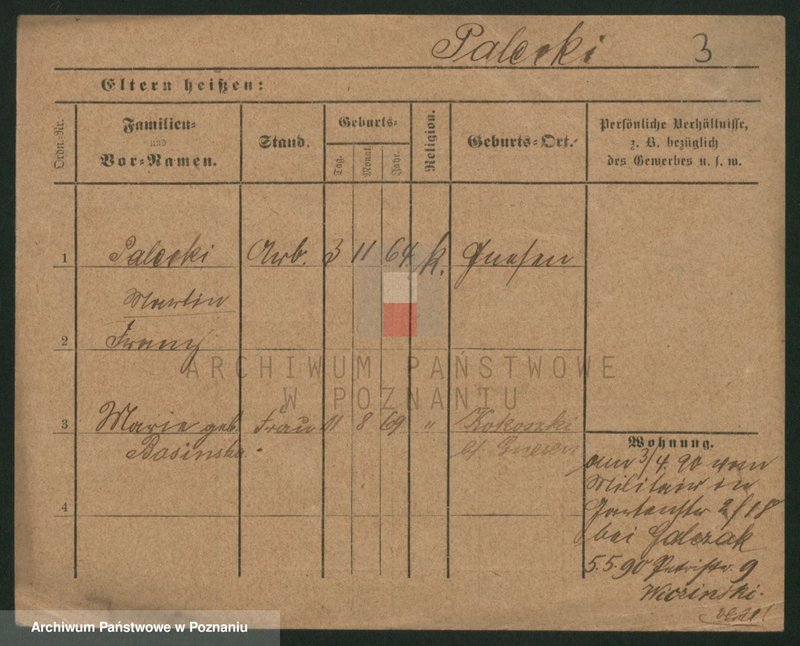 Palecki 3
Eltern heißen:
Ordn.-Nr. Familien- und Vor-Namen. Stand. Geburts- Tag. Monat. Jahr. Religion. Geburts-Ort. Persönliche Verhältnisse, z. B. bezüglich des Gewerbes u. s. w.
1 Palecki Arb. 3 11 64 k. Gnesen
Martin
2 Franz
ARCHIWUM PAŃSTWOWE
W POZNANIU
3 Marie geb. Frau 11 8 69 " Kokoszki
Basinska. b/ Gnesen
Wohnung.
am 3/4. 90 vom
Militair in
4 Gartenstr 2/18
bei Galczak
5.5 90 Petristr. 9
Archiwum Państwowe w Poznaniu